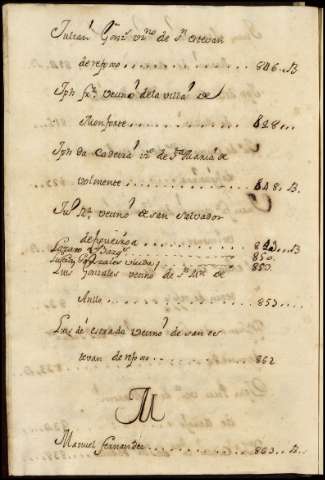 Julian Gonz. vno de Sn estevan
de refoxo . . . . . . . . . . . . 846. B
Jph frz. vecino de la villa de
Monforte . . . . . . . . . . 848 . .
Jph da Cadeira vº de Sta Maria de
volmente . . . . . . . . . . 848. B.
Ju vecino de san Salvador
de . . . . . . . . . . . 843 . . B
Lazaro . . . . . . . . 850.
Gonzales viuda . . . . . . . 850.
Luis Gonzales vecino de Sta Mra de
Anllo . . . . . . . . . . . . . . 853 . . . .
Luis de estrada vecino de san es
tevan de refoxo . . . . . . . . . 862
M
Manuel fernandez . . . . . . . . . . . 863 . . B.